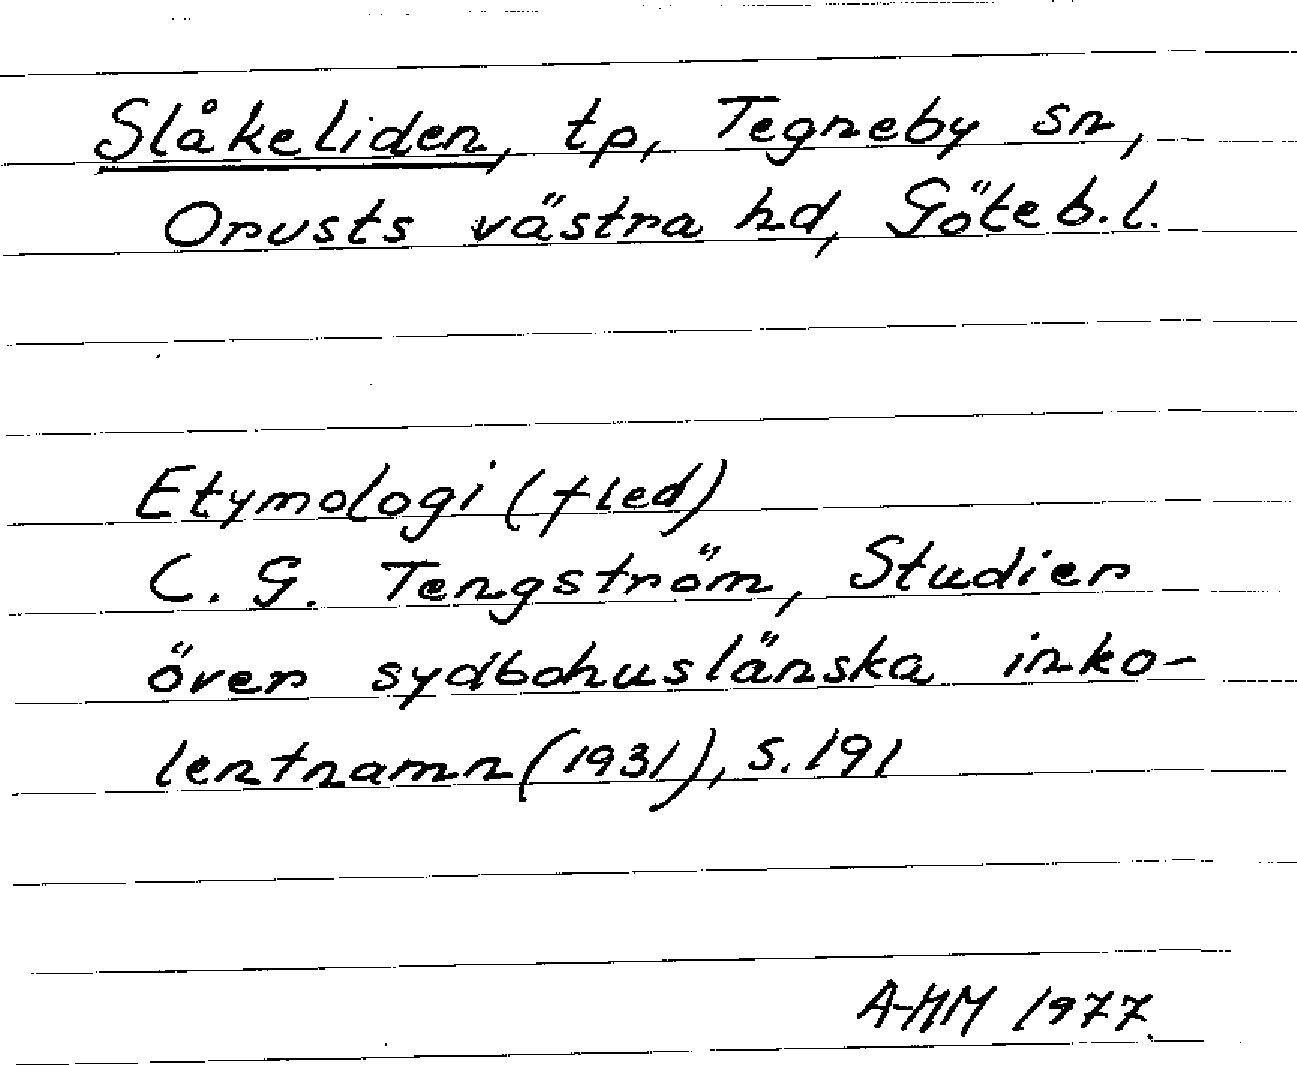 Slåkeliden, tp, Tegneby sn,
Orusts västra hd, Göteb.l.
Etymologi (f led)
C. G. Tengström, Studier
över sydbohuslänska inko-
lentnamn (1931), s. 191
A-MM 1977.